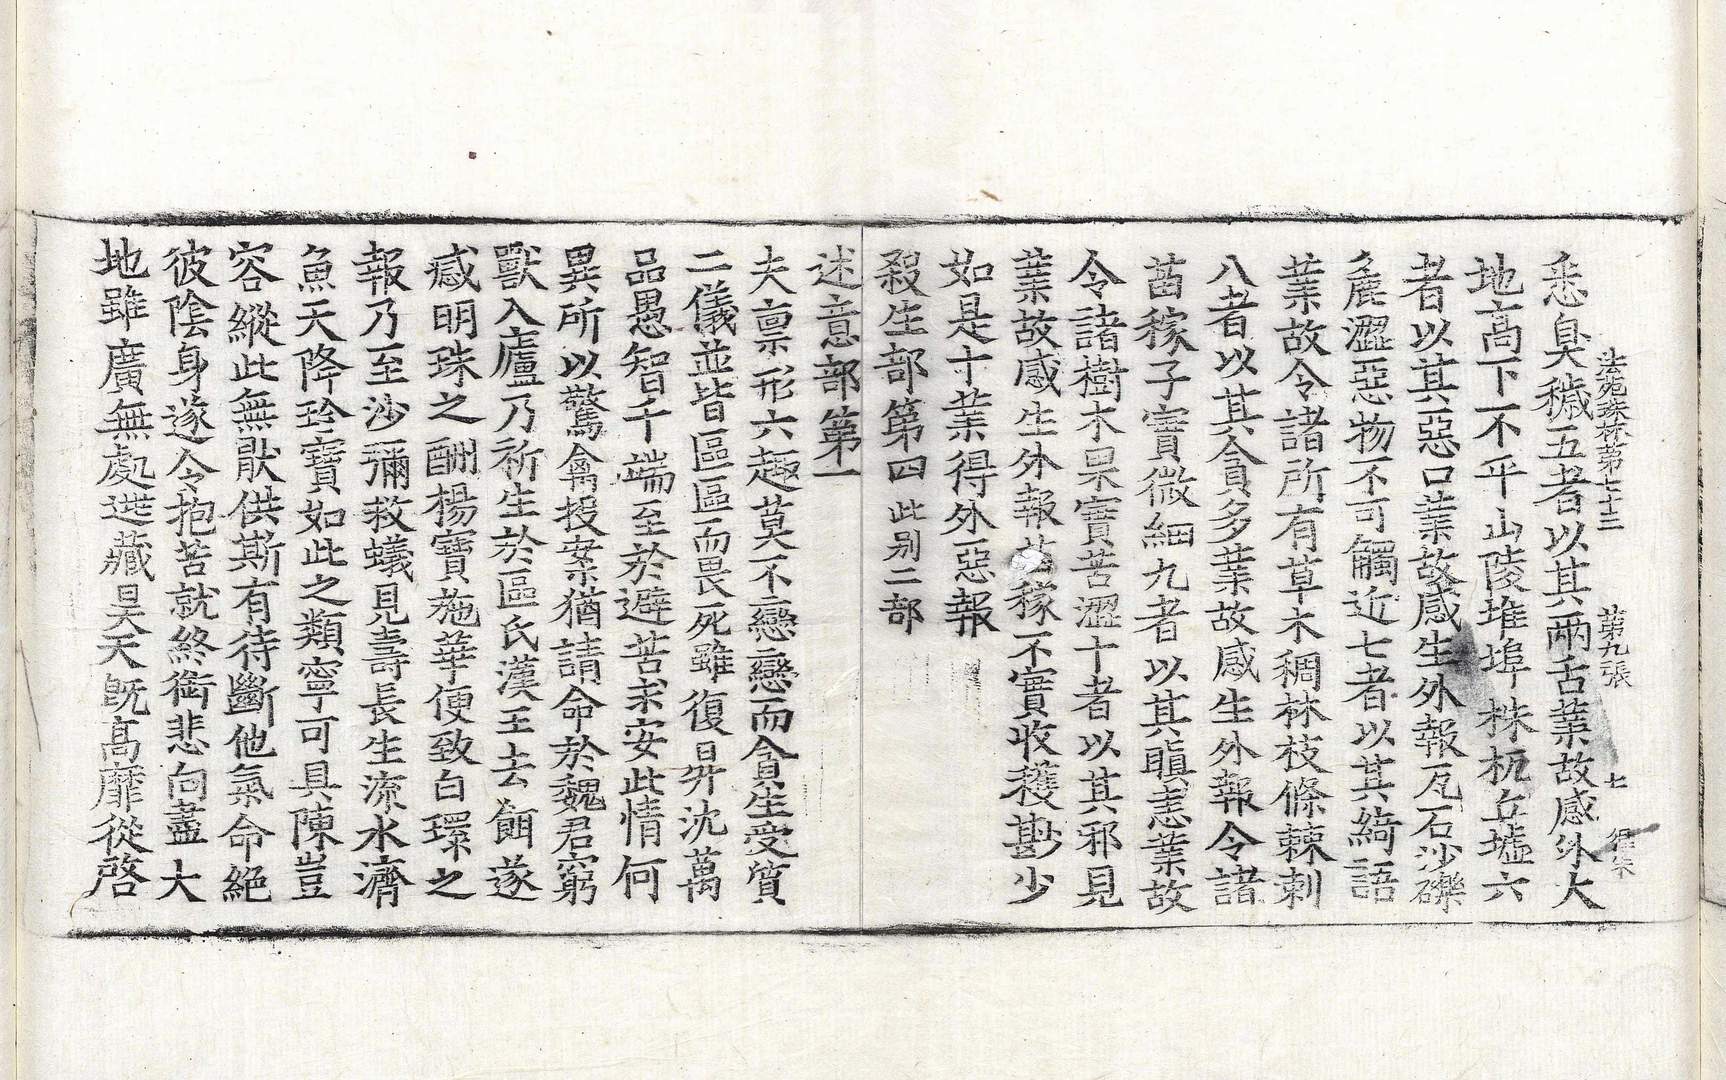 法苑珠林第七十三 第九張 七
悉臭穢五者以其兩舌業故感外大
地高下不平山陵堆埠株杌丘墟六
者以其惡口業故感生外報瓦石沙礫
麁澀惡物不可觸近七者以其綺語
業故令諸所有草木稠林枝條棘刺
八者以其貪多業故感生外報令諸
苗稼子實微細九者以其瞋恚業故
令諸樹木果實苦澀十者以其邪見
業故感生外報苗稼不實收穫尠少
如是十業得外惡報
殺生部第四 此別二部
述意部第一
夫稟形六趣莫不戀戀而貪生受質
二儀並皆區區而畏死雖復昇沈萬
品愚智千端至於避苦求安此情何
異所以驚禽投案猶請命於魏君窮
獸入廬乃祈生於區氏漢王去餌遂
感明珠之酬楊寶施華便致白環之
報乃至沙彌救蟻見壽長生流水濟
魚天降珍寶如此之類寧可具陳豈
容縱此無猒供斯有待斷他氣命絕
彼陰身遂令抱苦就終銜悲向盡大
地雖廣無處逃藏昊天既高靡從啓